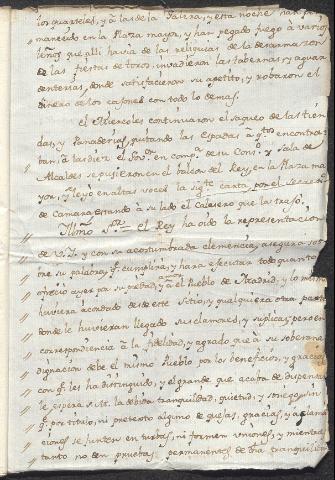 los quarteles, y a las de la Tarra, y esta noche han per-
manecido en la Plaza mayor, y han pegado fuego à varios
leños que allí havia de las reliquias de la desarmazon
de las fiestas de toros, invadieron las tabernas, y aguar
denterias, donde satisfacieron su apetito, y robaron el
dinero de los cajones con todo lo demas.
El Miercoles continuaron el saqueo de las tien
das, y Panaderias, quitando las Espadas à qtos encontra
ban; à las diez el Govor en compa de su Conso y Sala de
Alcaldes se pusieron en el balcon del Rey, en la Plaza ma
yor, y leyó en altas voces la sigte carta por el Secreto
de Camara estando à su lado el Calesero que las trajo.
Illmo Sor = el Rey ha oido la representacion
de V.I. y con su acostumbrada clemencia, asegura so
bre su palabra, q. cumplirà, y harà executar todo quanto
ofreciò ayer por su piedad, y a el Pueblo de Madrid, y lo mismo
huviera acordado desde este Sitio, y qualquiera otra parte
donde le huvieran llegado sus clamores, y suplicas; pero en
correspondencia à la fidelidad, y agrado que à su soberana
dignacion debe el mismo Pueblo por los beneficios, y gracias
con q. les ha distinguido, y el grande que acaba de dispensar
le espera S.M. la debida tranquilidad, quietud, y sosiego, sin
q. por titulo, ni pretexto alguno de quejas, gracias, y aclama
ciones se junten en turbas, ni formen uniones, y mientras
tanto no den pruebas permanentes de dha tranquilidad